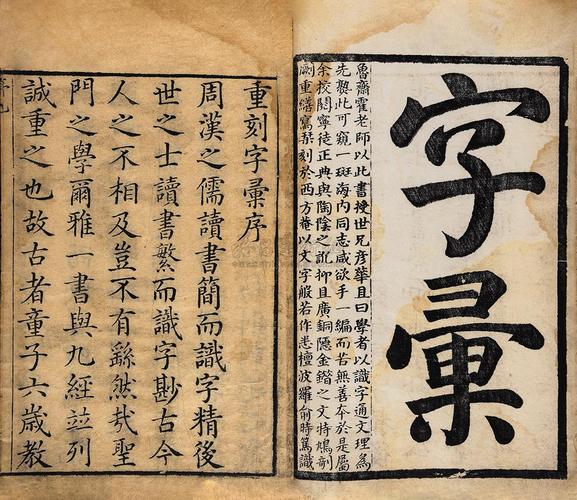 字彙
魯齋霍老師以此書授世兄彥華且曰學者以識字通文理爲
先檠此可窺一斑海內同志咸欲手一編而苦無善本於是屬
余挍閱寧徒正典與陶陰之訛抑且廣銅隱金鍇之文特鳩剞
劂重繕寫栞刻於西方菴以文字般若作悲檀波羅俞時篤識
重刻字彙序
周漢之儒讀書簡而識字精後
世之士讀書繁而識字尠古今
人之不相及豈不有繇然㢤聖
門之學爾雅一書與九經並列
誠重之也故古者童子六歲教